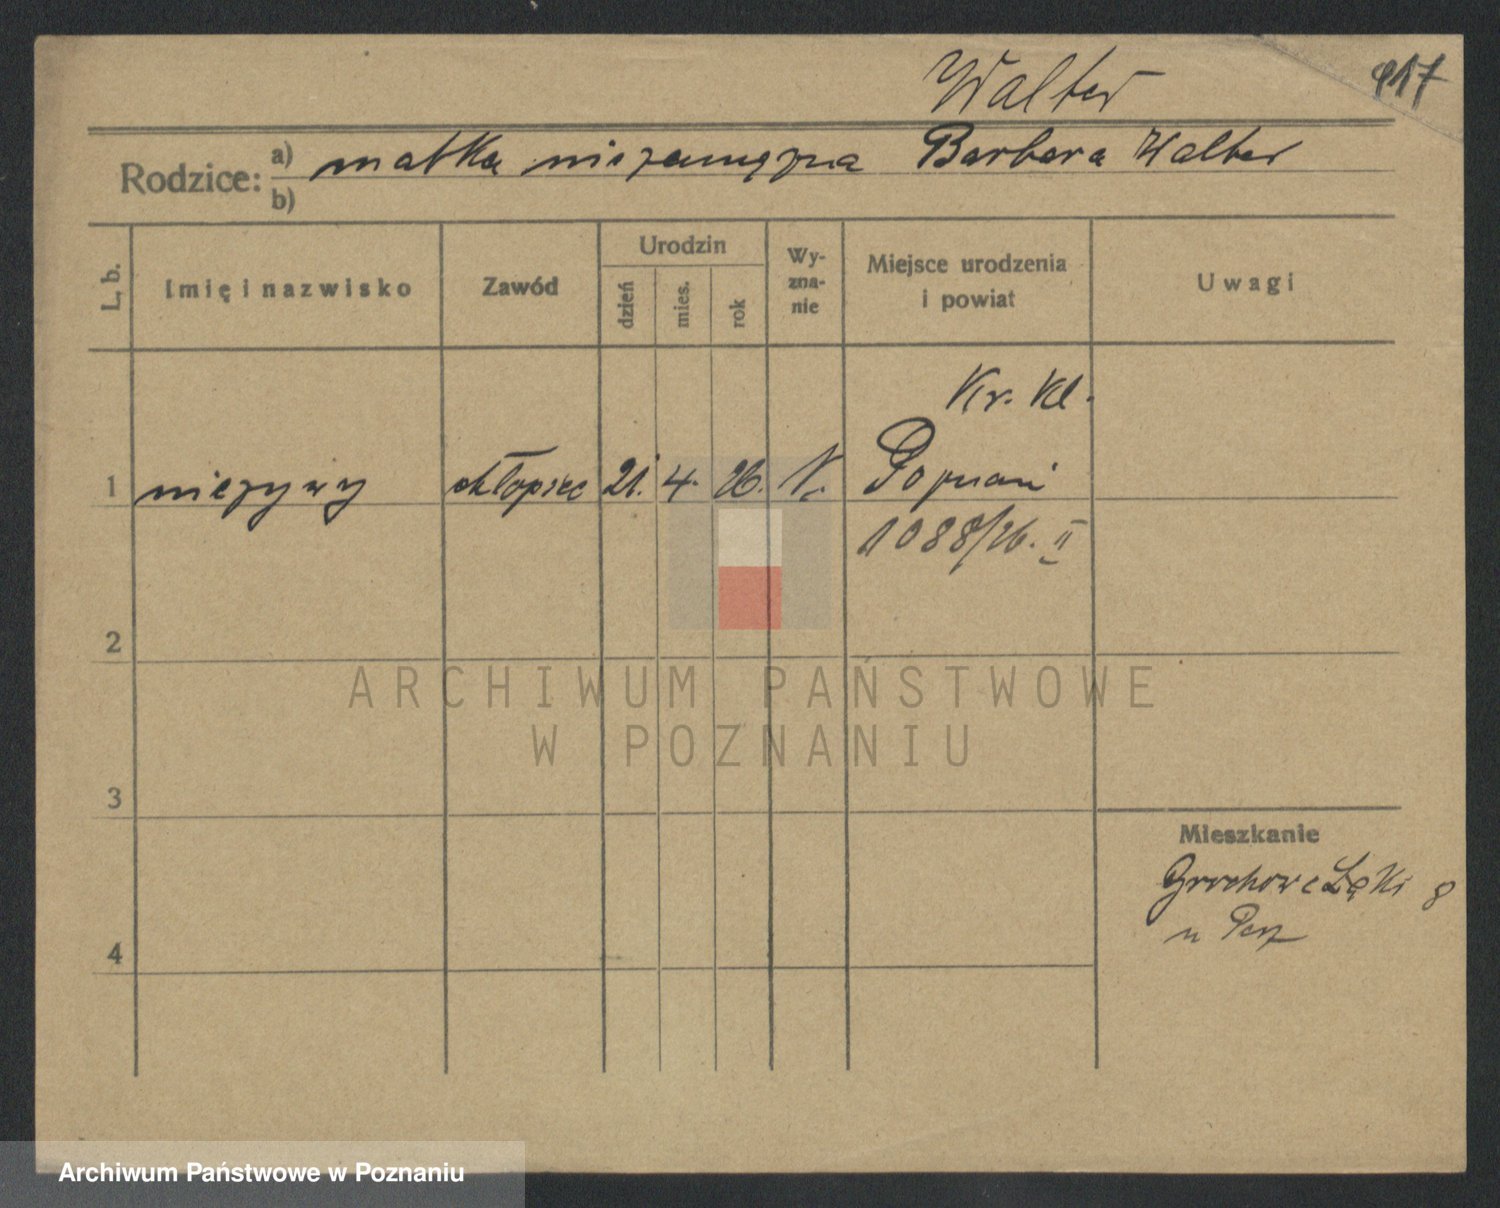 Walter
917
Rodzice: a) matka niezamężna Barbara Walter
b)
L. b.
Imię i nazwisko
Zawód
Urodzin
dzień
mies.
rok
Wy-
zna-
nie
Miejsce urodzenia
i powiat
Uwagi
Kr. Kl.
1 nieżywy chłopiec 21. 4. 26. N. Poznań
1088/26. II
2
ARCHIWUM PAŃSTWOWE
W POZNANIU
3
Mieszkanie
Grochowe Łąki 8
u
4
Archiwum Państwowe w Poznaniu